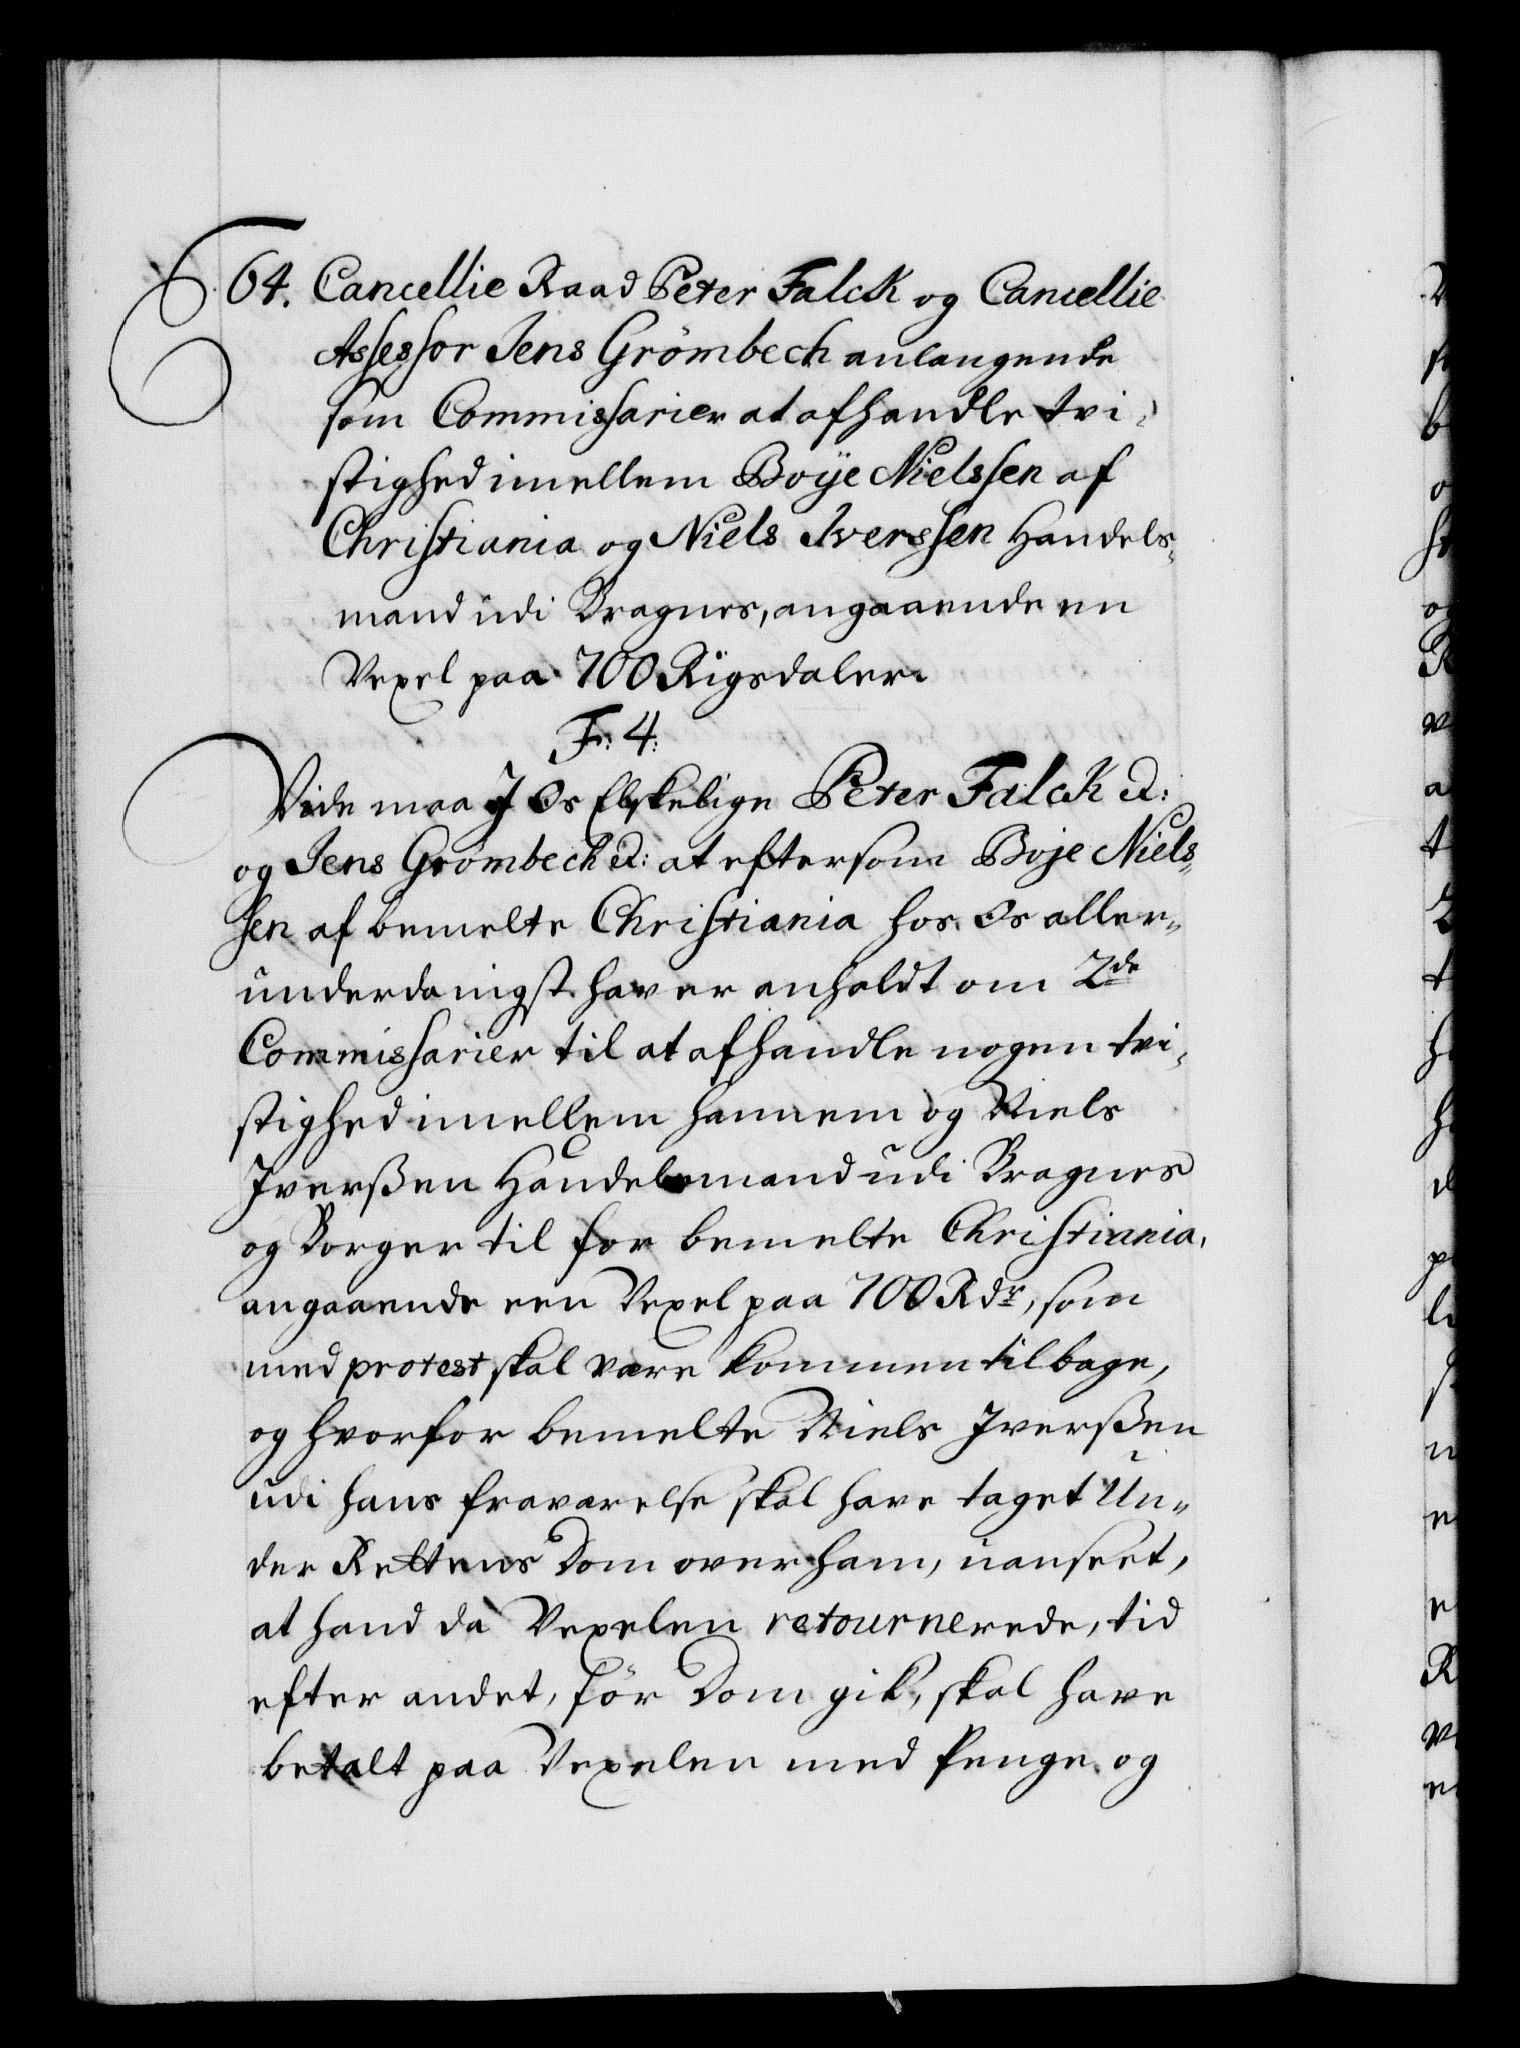 64. Cancellie Raad Peter Falck og Cancellie
Assessor Jens Grömbech anlangende
som Commissarier at afhandle tvi-
stighed imellem Boÿe Nielssen af
Christiania og Niels Iverssen Handels-
mand udi Bragnes, angaaende en
Vexel paa 700 Rigsdaler.
Fr: 4:
Vide maa J Os Elskelige Peter Falck et:
og Jens Grömbech et: at eftersom Boje Niels-
sen af bemelte Christiania hos Os aller-
underdanigst haver anholdt om 2de
Commissarier til at afhandle nogen tvi-
stighed imellem hannem og Niels
Iverßen Handelsmand udi Bragnes
og Borger til for bemelte Christiania,
angaaende een Vexel paa 700 Rdr, som
med protest skal være kommen tilbage,
og hvorfor bemelte Niels Iverßen
udi hans fraværelse skal have taget Un-
der Rettens Dom over ham, uanseet,
at hand da Vexelen retournerede, tid
efter andet, för Dom gik, skal have
betalt paa Vexelen med Penge og